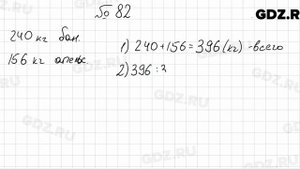 № 82
GDZ.R
240 кг бан.
156 кг апельс.
1) 240+156=396(кг) - всего
2) 396 :